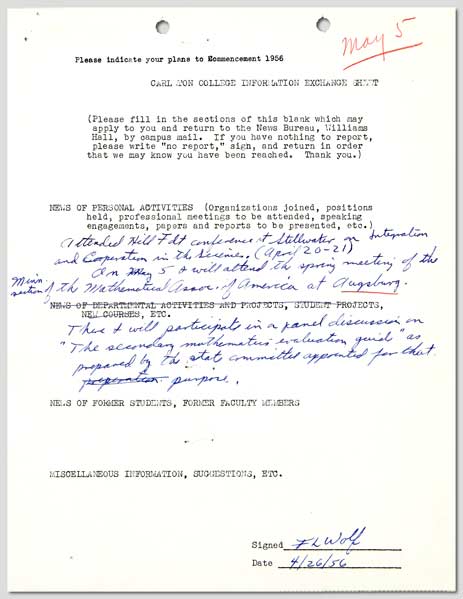 May 5
Please indicate your plans to Commencement 1956
CARLETON COLLEGE INFORMATION EXCHANGE SHEET
(Please fill in the sections of this blank which may
apply to you and return to the News Bureau, Williams
Hall, by campus mail. If you have nothing to report,
please write "no report," sign, and return in order
that we may know you have been reached. Thank you.)
NEWS OF PERSONAL ACTIVITIES (Organizations joined, positions
held, professional meetings to be attended, speaking
engagements, papers and reports to be presented, etc.)
Attended Hill Fdt conference at Stillwater on Integration
and Cooperation in the Sciences. (April 20-21)
On May 5 I will attend the spring meeting of the
Minn. section of the Mathematical Assoc. of America at Augsburg.
NEWS OF DEPARTMENTAL ACTIVITIES AND PROJECTS, STUDENT PROJECTS,
NEW COURSES, ETC.
There I will participate in a panel discussion on
"The secondary mathematics evaluation guid" as
prepared by the state committee appointed for that
preparation purpose.
NEWS OF FORMER STUDENTS, FORMER FACULTY MEMBERS
MISCELLANEOUS INFORMATION, SUGGESTIONS, ETC.
Signed F L Wolf
Date 4/26/56